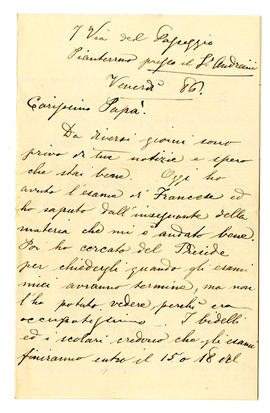 7 Via del Papeggio
Pianterreno presso il Sr Andreini
Venerdì 86.
Carissimo Papà!
Da diversi giorni sono
privo di tue notizie e spero
che stai bene. Oggi ho
avuto l'esame di Francese ed
ho saputo dall'insegnante della
materia che mi è andato bene.
Poi ho cercato del Preside
per chiedergli quando gli esami
miei avranno termine, ma non
l'ho potuto vedere, perchè era
occupatissimo. I bidelli
ed i scolari credono che gli esami
finiranno entro il 15 o 18 del